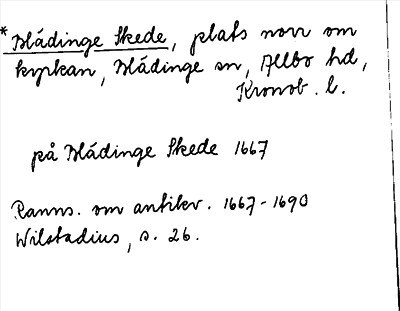 *Blädinge Skede, plats norr om
kyrkan, Blädinge sn, Allbo hd,
Kronob. l.
på Blädinge Skede 1667
Ranns. om antikv. 1667-1690
Wilstadius, s. 26.